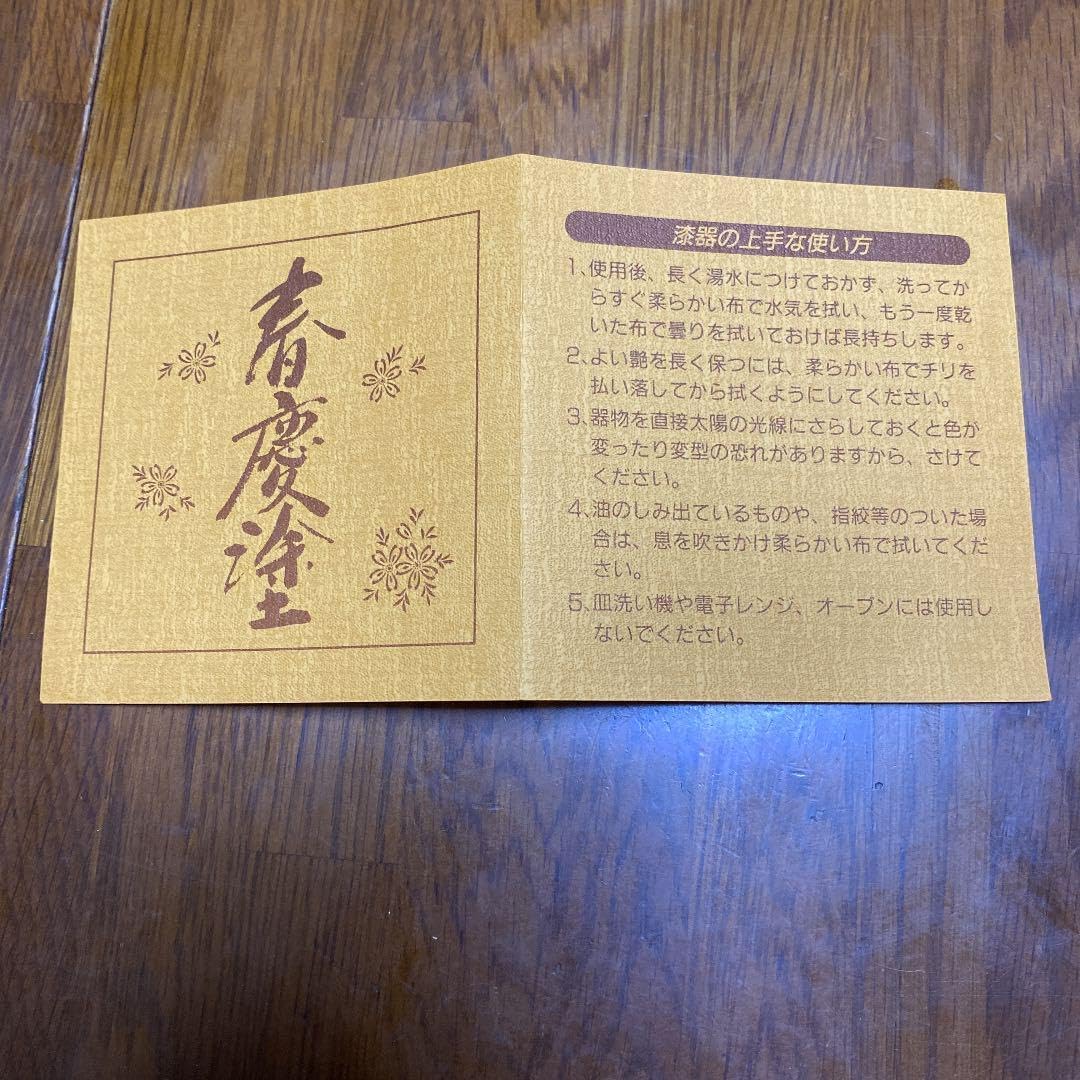 春慶塗
漆器の上手な使い方
1、使用後、長く湯水につけておかず、洗ってか
らすぐ柔らかい布で水気を拭い、もう一度乾
いた布で曇りを拭いておけば長持ちします。
2、よい艶を長く保つには、柔らかい布でチリを
払い落してから拭くようにしてください。
3、器物を直接太陽の光線にさらしておくと色が
変ったり変型の恐れがありますから、さけて
ください。
4、油のしみ出ているものや、指紋等のついた場
合は、息を吹きかけ柔らかい布で拭いてくだ
さい。
5、皿洗い機や電子レンジ、オーブンには使用し
ないでください。